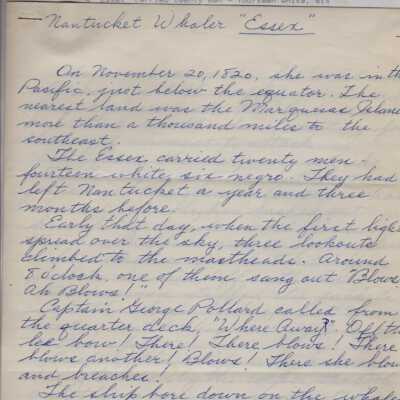 Essex carried twenty men - fourteen white, six
Nantucket Whaler "Essex"
On November 20, 1820, she was in th
Pacific, just below the equator. The
nearest land was the Marquesas Island
more than a thousand miles to the
southeast.
The Essex carried twenty men -
fourteen white, six negro. They had
left Nantucket a year and three
months before.
Early that day, when the first light
spread over the sky, three lookouts
climbed to the mastheads. Around
8 o'clock, one of them sang out "Blows
Ah Blows!"
Captain George Pollard called from
the quarter deck, "Where Away?" Off the
lee bow! There! There blows! There
blows another! Blows! There she blow
and breaches!
The ship bore down on the whales